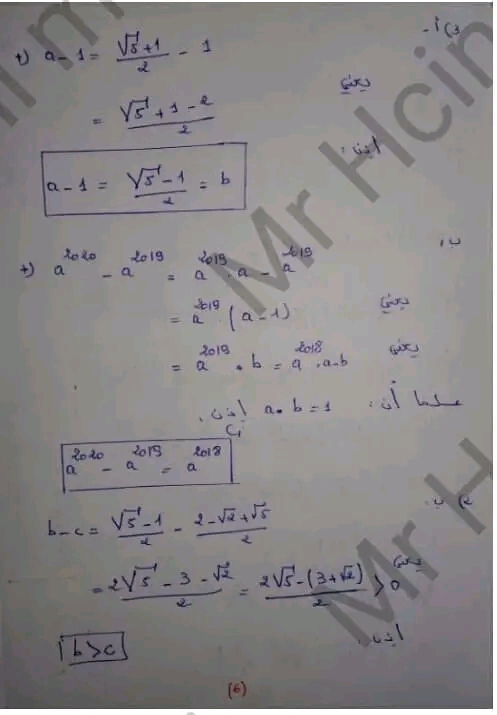 3) أ-
*) a - 1 = (√5 + 1)/2 - 1
يعني
= (√5 + 1 - 2)/2
إذن:
a - 1 = (√5 - 1)/2 = b
ب.
*) a^2020 - a^2019 = a^2019 . a - a^2019
يعني
= a^2019 . (a - 1)
يعني
= a^2019 . b = a^2018 . a.b
علما أن: a . b = 1 إذن.
a^2020 - a^2019 = a^2018
ب.
b - c = (√5 - 1)/2 - (2 - √2 + √5)/2
يعني
= (2√5 - 3 - √2)/2 = (2√5 - (3 + √2))/2 > 0
إذن:
b > c
(6)
Mr Hcin
Mr H